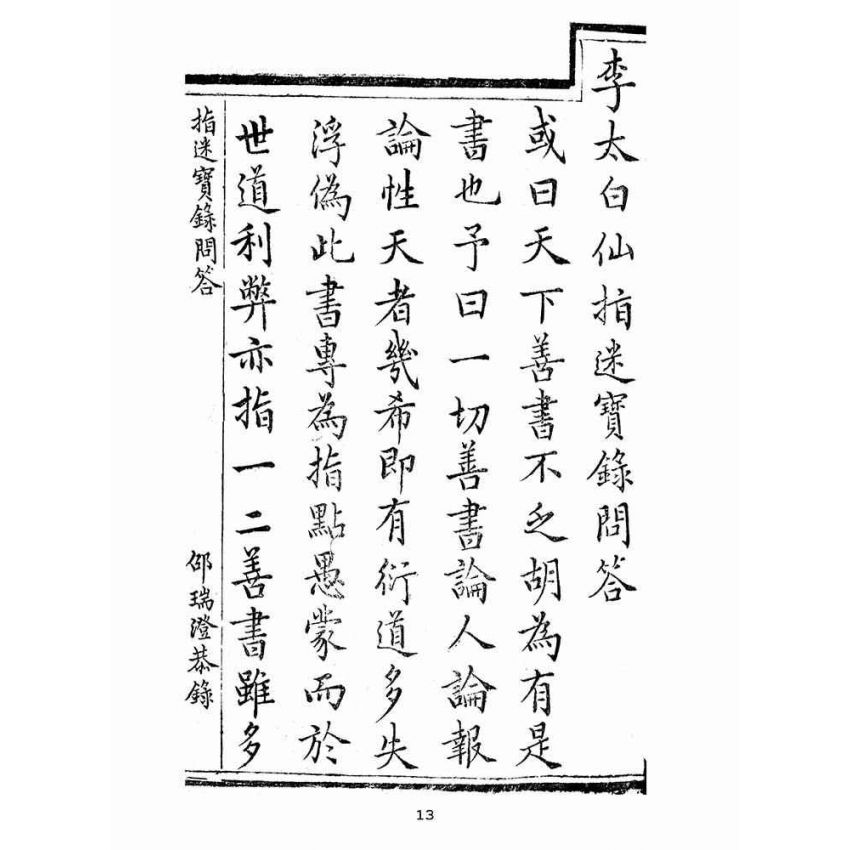 李太白仙指迷寶錄問答
或曰天下善書不乏胡為有是
書也予曰一切善書論人論報
論性天者幾希即有衍道多失
浮偽此書專為指點愚蒙而於
世道利弊亦指一二善書雖多
指迷寶錄問答
邵瑞澄恭錄
13